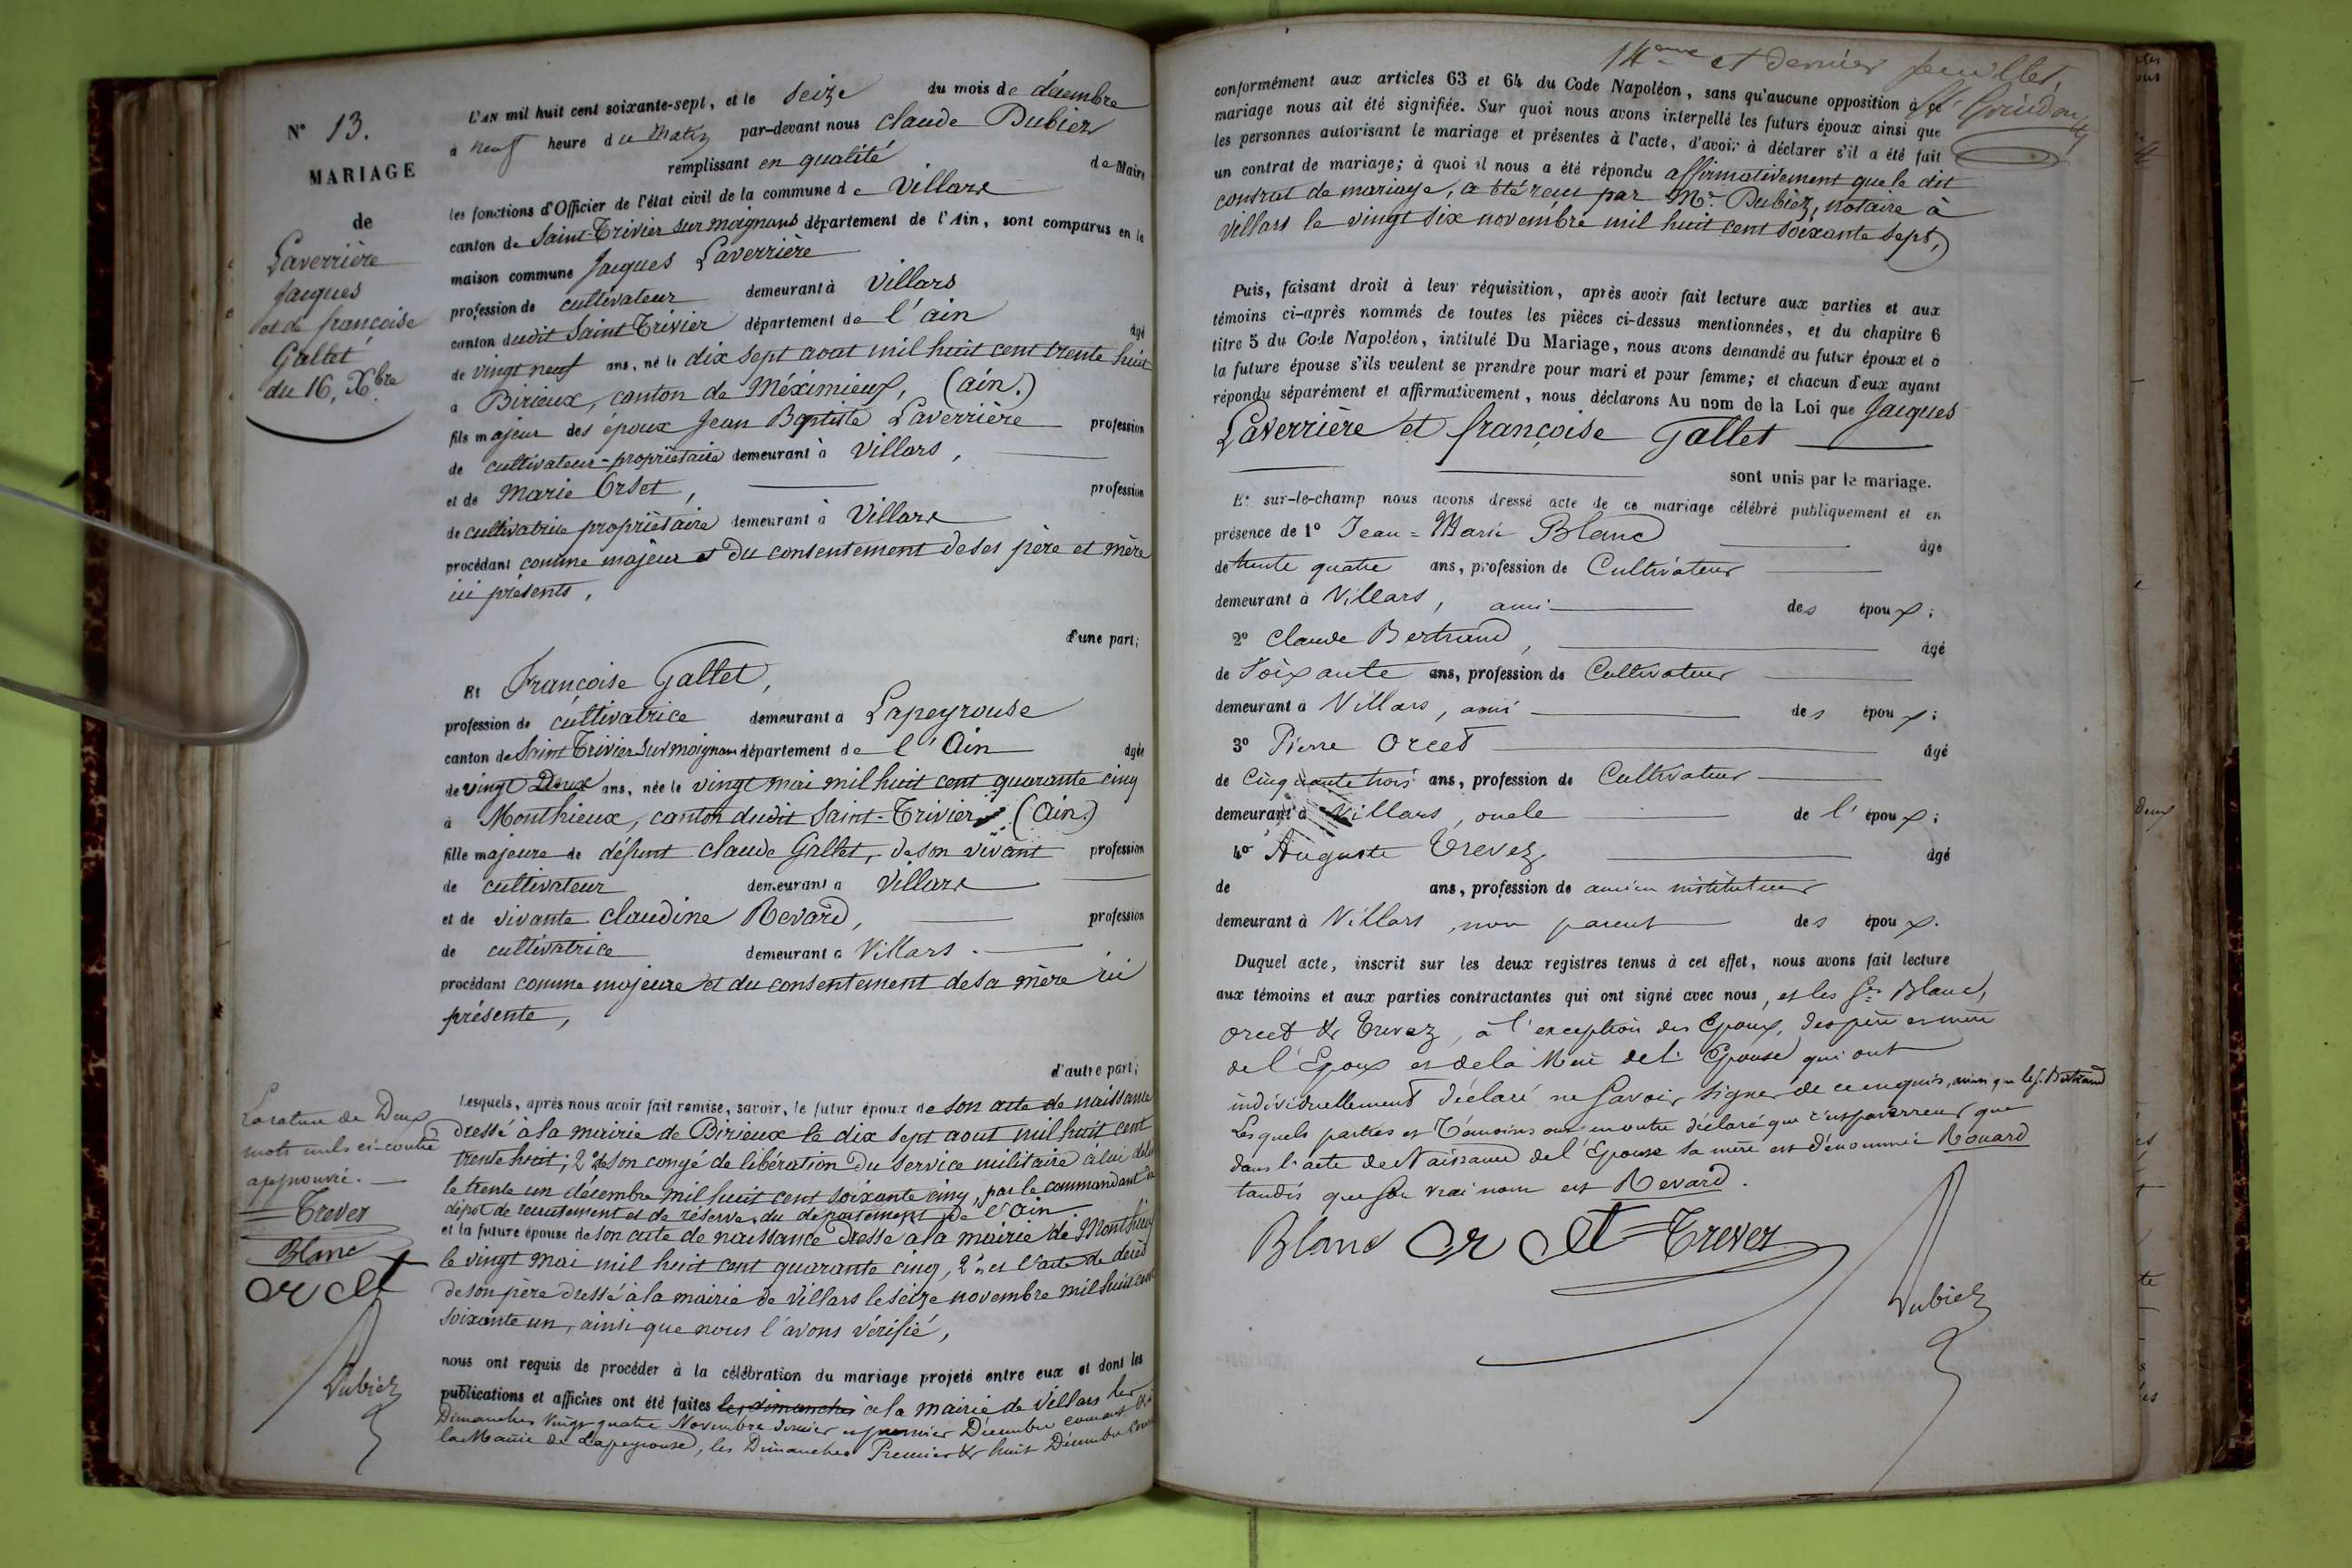 N° 13.
MARIAGE
de
Laverrière
Jacques
et de françoise
Gallet
du 16, Xbre
L'AN mil huit cent soixante-sept, et le seize du mois de décembre
à neuf heure du matin par-devant nous Claude Dubiez
remplissant en qualité de Maire
les fonctions d'Officier de l'état civil de la commune de Villars
canton de Saint-Trivier sur moignans département de l'Ain, sont comparus en la
maison commune Jacques Laverrière
profession de cultivateur demeurant à Villars
canton dudit Saint Trivier département de l'ain âgé
de vingt neuf ans, né le dix sept aout mil huit cent trente huit
à Birieux, canton de Méximieux, (ain.)
fils majeur des époux Jean Baptiste Laverrière profession
de cultivateur-propriétaire demeurant à Villars,
et de Marie Orset, profession
de cultivatrice propriétaire demeurant à Villars
procédant comme majeur et du consentement de ses père et mère
ici présents,
d'une part;
Et Françoise Gallet,
profession de cultivatrice demeurant à Lapeyrouse
canton de Saint Trivier sur moignans département de l'Ain âgée
de vingt Deux ans, née le vingt mai mil huit cent quarante cinq
à Monthieux, canton dudit Saint-Trivier, (Ain.)
fille majeure de défunt Claude Gallet, de son vivant profession
de cultivateur demeurant à Villars
et de vivante Claudine Revard, profession
de cultivatrice demeurant à Villars.
procédant comme majeure et du consentement de sa mère ici
présente,
d'autre part;
Lesquels, après nous avoir fait remise, savoir, le futur époux de son acte de naissance
dressé à la mairie de Birieux le dix sept aout mil huit cent
trente huit; 2° de son congé de libération du service militaire à lui
le trente un décembre mil huit cent soixante cinq, par le commandant du
dépôt de recrutement et de réserve, du département de l'Ain
et la future épouse de son acte de naissance dressé à la mairie de Monthieux
le vingt mai mil huit cent quarante cinq, 2° et l'acte de décès
de son père dressé à la mairie de Villars le seize novembre mil huit cent
soixante un, ainsi que nous l'avons vérifié,
nous ont requis de procéder à la célébration du mariage projeté entre eux et dont les
publications et affiches ont été faites les dimanches à la mairie de Villars les
Dimanches Vingt quatre Novembre dernier et premier Décembre courant & à
la Mairie de Lapeyrouse, les Dimanches Premier & huit Décembre
La rature de Deux
mots nuls ci-contre
approuvée.
Trevez
Blanc
Orcet
Dubiez
14eme et dernier feuillet,
conformément aux articles 63 et 64 du Code Napoléon, sans qu'aucune opposition à ce
mariage nous ait été signifiée. Sur quoi nous avons interpellé les futurs époux ainsi que
les personnes autorisant le mariage et présentes à l'acte, d'avoir à déclarer s'il a été fait
un contrat de mariage; à quoi il nous a été répondu affirmativement que le dit
contrat de mariage, a été reçu par Me. Dubiez, notaire à
Villars le vingt six novembre mil huit cent soixante sept,
Puis, faisant droit à leur réquisition, après avoir fait lecture aux parties et aux
témoins ci-après nommés de toutes les pièces ci-dessus mentionnées, et du chapitre 6
titre 5 du Code Napoléon, intitulé Du Mariage, nous avons demandé au futur époux et à
la future épouse s'ils veulent se prendre pour mari et pour femme; et chacun d'eux ayant
répondu séparément et affirmativement, nous déclarons Au nom de la Loi que Jacques
Laverrière et françoise Gallet
sont unis par le mariage.
Et sur-le-champ nous avons dressé acte de ce mariage célébré publiquement et en
présence de 1° Jean=Marie Blanc âgé
de trente quatre ans, profession de Cultivateur
demeurant à Villars, ami des époux;
2° Claude Bertrand, âgé
de Soixante ans, profession de Cultivateur
demeurant à Villars, ami des époux;
3° Pierre Orcet âgé
de Cinquante trois ans, profession de Cultivateur
demeurant à Villars, oncle de l'époux;
4° Auguste Trevez âgé
de ans, profession de ancien instituteur
demeurant à Villars, non parent des époux.
Duquel acte, inscrit sur les deux registres tenus à cet effet, nous avons fait lecture
aux témoins et aux parties contractantes qui ont signé avec nous, et les Srs Blanc,
Orcet & Trevez, à l'exception des Epoux, des père et mère
de l'Epoux et de la Mère de l'Epouse qui ont
individuellement déclaré ne Savoir Signer de ce enquis, ainsi que le S. Bertrand
Lesquels parties et Témoins ont en outre déclaré que c'est par erreur que
dans l'acte de Naissance de l'Epouse sa mère est dénommée Rouard
tandis que son vrai nom est Revard.
Blanc Orcet Trevez
Dubiez